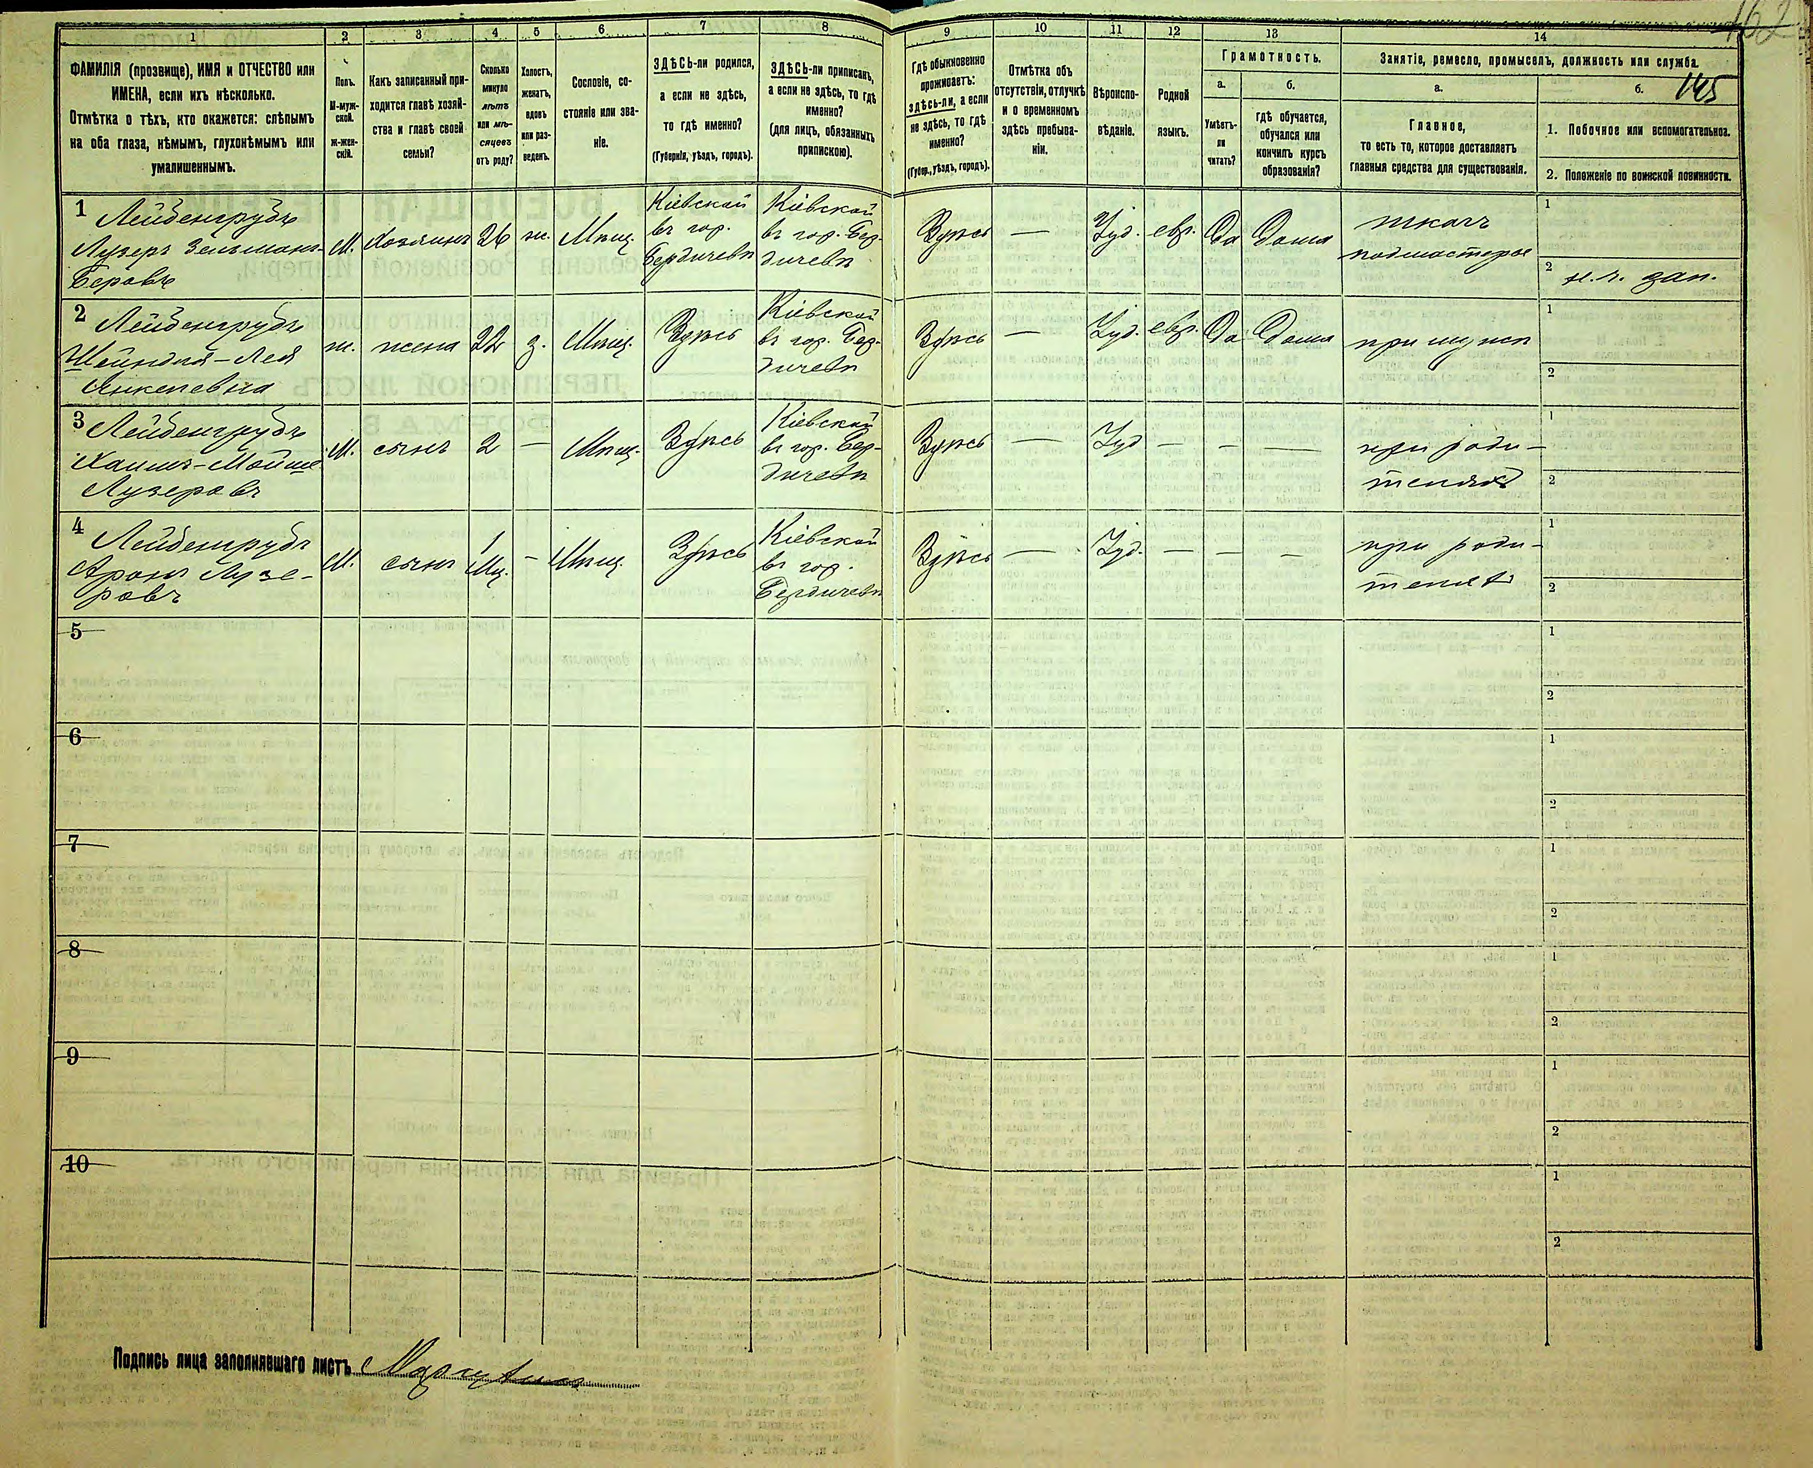 162
145
1
2
3
4
5
6
7
8
9
10
11
12
13
14
ФАМИЛІЯ (прозвище), ИМЯ и ОТЧЕСТВО или
ИМЕНА, если ихъ нѣсколько.
Отмѣтка о тѣхъ, кто окажется: слѣпымъ
на оба глаза, нѣмымъ, глухонѣмымъ или
умалишеннымъ.
Полъ.
М-муж-
ской.
Ж-жен-
скій.
Какъ записанный при-
ходится главѣ хозяй-
ства и главѣ своей
семьи?
Сколько
минуло
лѣтъ
или мѣ-
сяцевъ
отъ роду?
Холостъ,
женатъ,
вдовъ
или раз-
веденъ.
Сословіе, со-
стояніе или зва-
ніе.
ЗДѢСЬ-ли родился,
а если не здѣсь,
то гдѣ именно?
(Губернія, уѣздъ, городъ).
ЗДѢСЬ-ли приписанъ,
а если не здѣсь, то гдѣ
именно?
(для лицъ, обязанныхъ
припискою).
Гдѣ обыкновенно
проживаетъ:
здѣсь-ли, а если
не здѣсь, то гдѣ
именно?
(Губер., уѣздъ, городъ).
Отмѣтка объ
отсутствіи, отлучкѣ
и о временномъ
здѣсь пребыва-
ніи.
Вѣроиспо-
вѣданіе.
Родной
языкъ.
Грамотность.
а.
Умѣетъ-
ли
читать?
б.
гдѣ обучается,
обучался или
кончилъ курсъ
образованія?
Занятіе, ремесло, промыселъ, должность или служба.
а.
Главное,
то есть то, которое доставляетъ
главныя средства для существованія.
б.
1. Побочное или вспомогательное.
2. Положеніе по воинской повинности.
1
Лейденгрубъ
Лузеръ Зельманъ-
Беровъ
М.
Хозяинъ
26
ж.
Мѣщ.
Кіевской
въ гор.
Бердичевѣ
Кіевской
въ гор. Бер-
дичевѣ
Здѣсь
—
Іуд.
евр.
Да
Дома
ткачъ
подмастерье
1
2
н. ч. зап.
2
Лейденгрубъ
Шейндля-Лея
Янкелевна
ж.
жена
22
з.
Мѣщ.
Здѣсь
Кіевской
въ гор. Бер-
дичевѣ
Здѣсь
—
Іуд.
евр.
Да
Дома
при мужѣ
1
2
3
Лейденгрубъ
Хаимъ-Мойше
Лузеровъ
М.
сынъ
2
—
Мѣщ.
Здѣсь
Кіевской
въ гор. Бер-
дичевѣ
Здѣсь
—
Іуд
—
—
—
при роди-
теляхъ
1
2
4
Лейденгрубъ
Аронъ Лузе-
ровъ
М.
сынъ
1
Мц.
—
Мѣщ.
Здѣсь
Кіевской
въ гор.
Бердичевѣ
Здѣсь
—
Іуд.
—
—
—
при роди-
теляхъ
1
2
5
1
2
6
1
2
7
1
2
8
1
2
9
1
2
10
1
2
Подпись лица заполнявшаго листъ